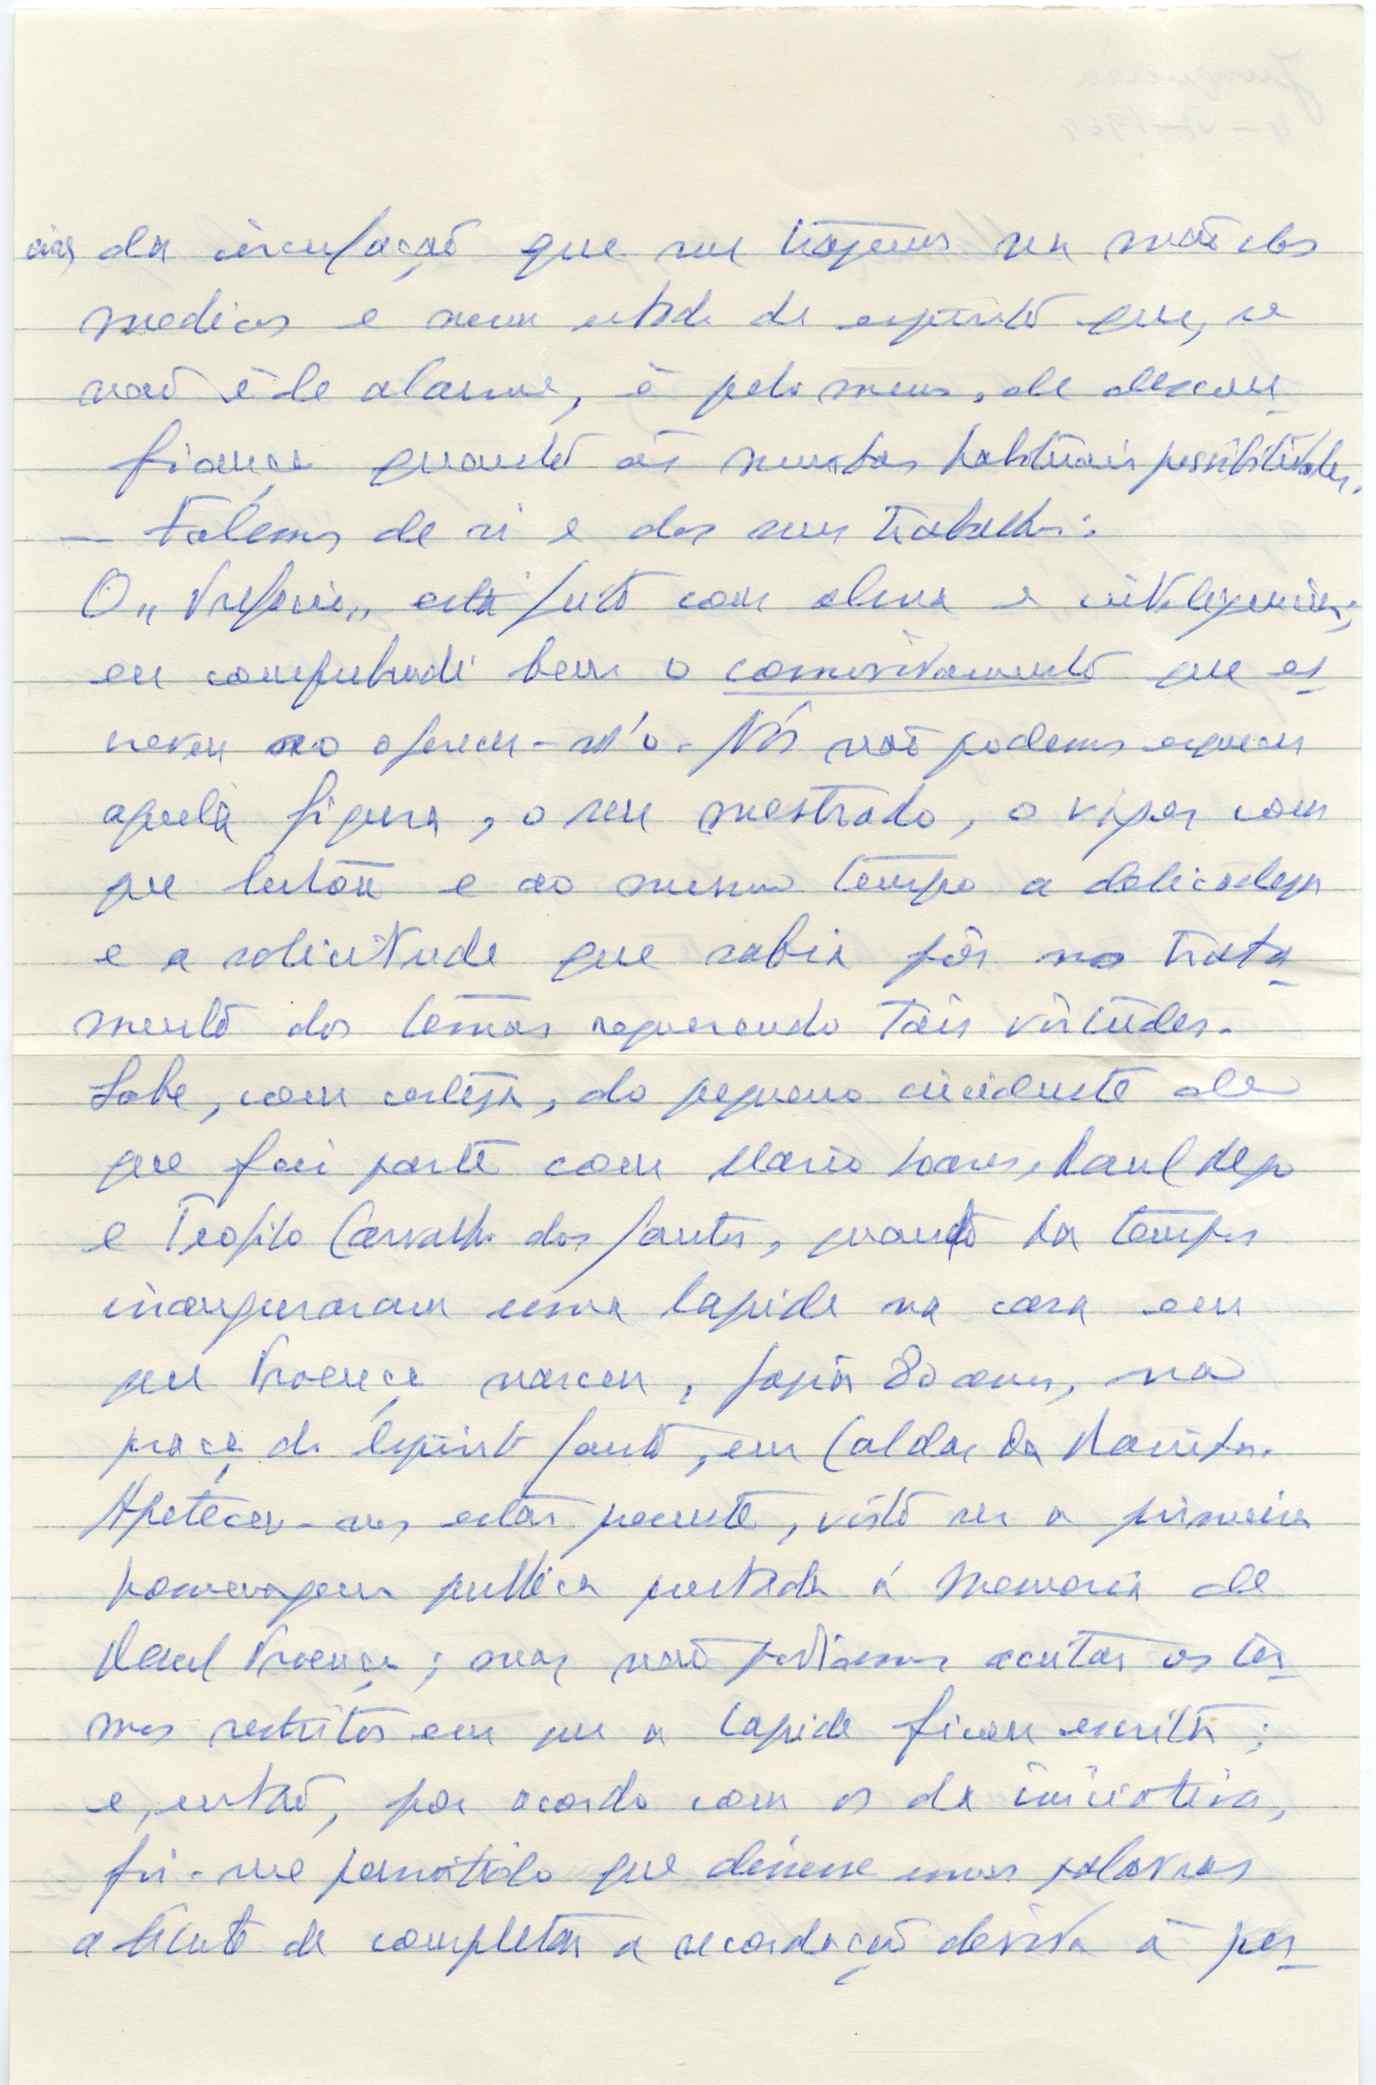 cias da circulação que me trazem na mão dos
medicos e num estado de espirito que, se
não é de alarme, é pelo menos, de descon-
fiança quanto ás minhas habituais possibilidades.
— Falemos de si e dos seus trabalhos:
O "Prefacio" está feito com alma e inteligencia;
eu compreendi bem o comovidamente que es-
creveu ao oferecer-m'o. Nós não podemos esquecer
aquela figura, o seu mestrado, o vigor com
que lutou e ao mesmo tempo a delicadeza
e a solicitude que sabia pôr no trata-
mento dos temas requerendo tais virtudes.
Sabe, com certeza, do pequeno incidente de
que fui parte com Mario Soares, Raul Rego
e Teofilo Carvalho dos Santos, quando ha tempos
inauguraram uma lapide na casa em
que Proença nasceu, fazia 80 anos, na
praça do Espirito Santo, em Caldas da Rainha.
Apeteceu-nos estar presente, visto ser a primeira
homenagem publica prestada á memoria de
Raul Proença; mas não podiamos aceitar os ter-
mos restritos em que a lapide ficou escrita;
e, então, por acordo com os da iniciativa,
foi-me permitido que dissesse umas palavras
a tentar de completar a recordação devida á per-